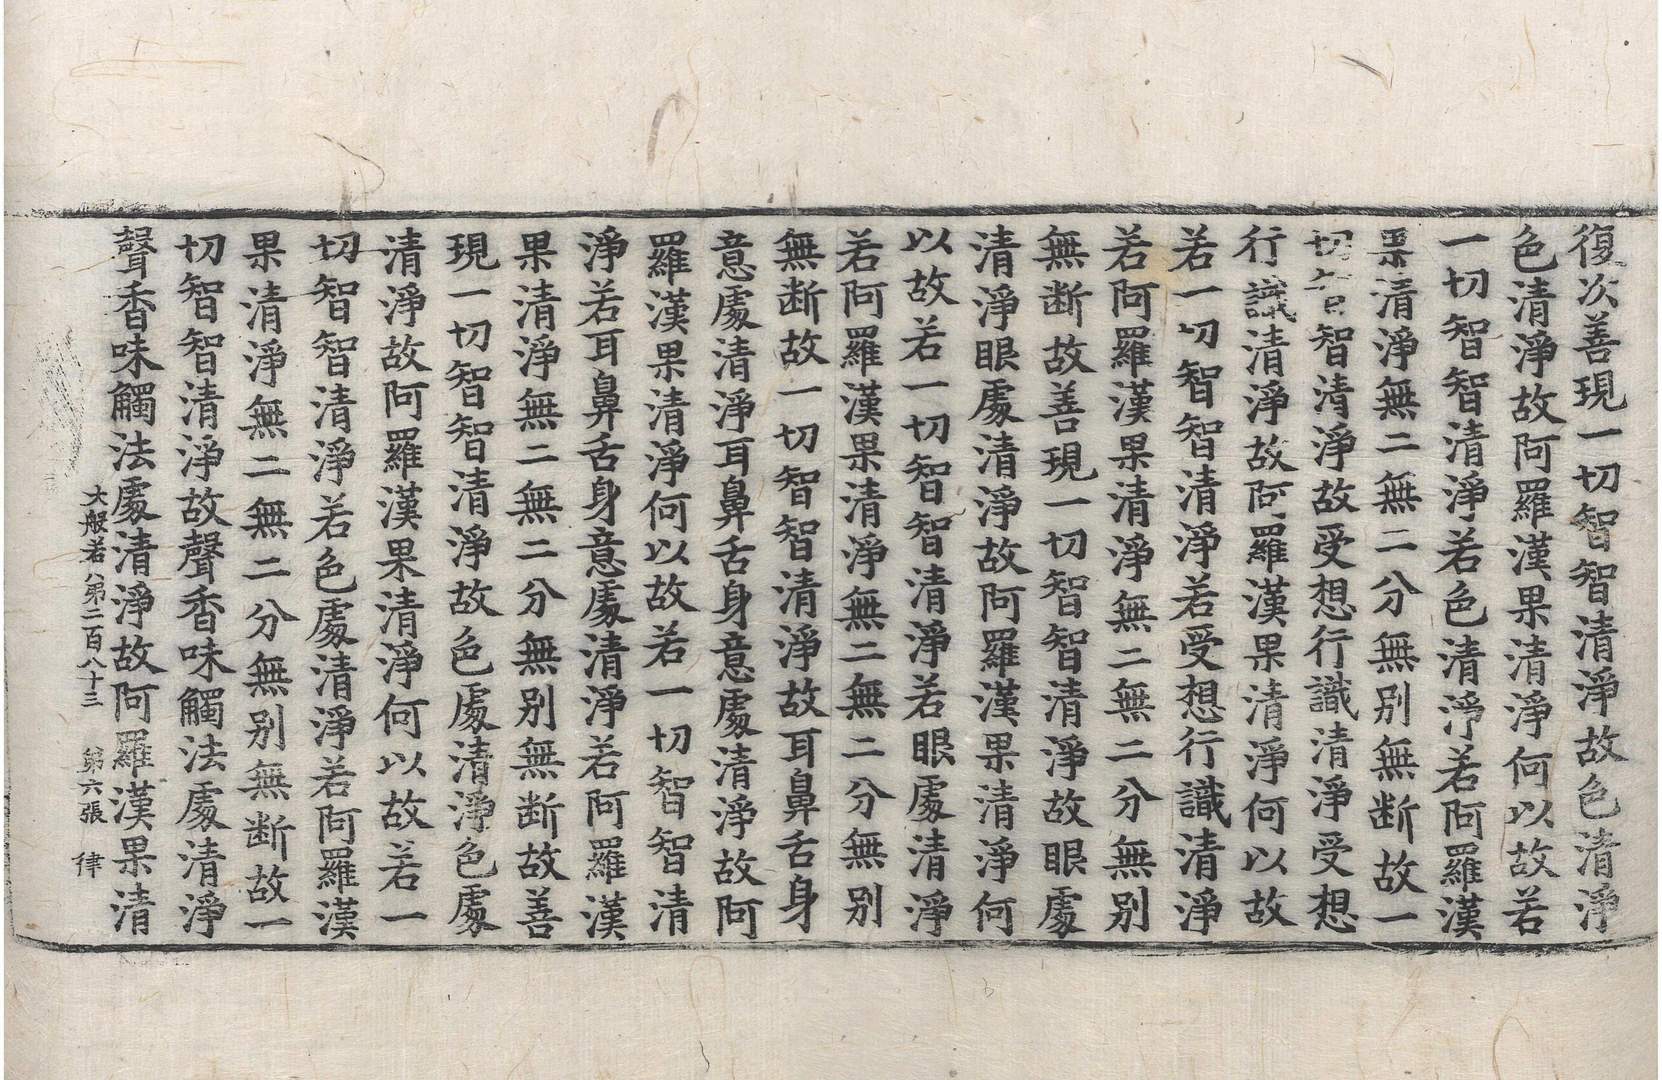 復次善現一切智智清淨故色清淨
色清淨故阿羅漢果清淨何以故若
一切智智清淨若色清淨若阿羅漢
果清淨無二無二分無别無断故一
切智智清淨故受想行識清淨受想
行識清淨故阿羅漢果清淨何以故
若一切智智清淨若受想行識清淨
若阿羅漢果清淨無二無二分無别
無断故善現一切智智清淨故眼處
清淨眼處清淨故阿羅漢果清淨何
以故若一切智智清淨若眼處清淨
若阿羅漢果清淨無二無二分無别
無断故一切智智清淨故耳鼻舌身
意處清淨耳鼻舌身意處清淨故阿
羅漢果清淨何以故若一切智智清
淨若耳鼻舌身意處清淨若阿羅漢
果清淨無二無二分無别無断故善
現一切智智清淨故色處清淨色處
清淨故阿羅漢果清淨何以故若一
切智智清淨若色處清淨若阿羅漢
果清淨無二無二分無别無断故一
切智智清淨故聲香味觸法處清淨
聲香味觸法處清淨故阿羅漢果清
大般若八第二百八十三 第六張 律